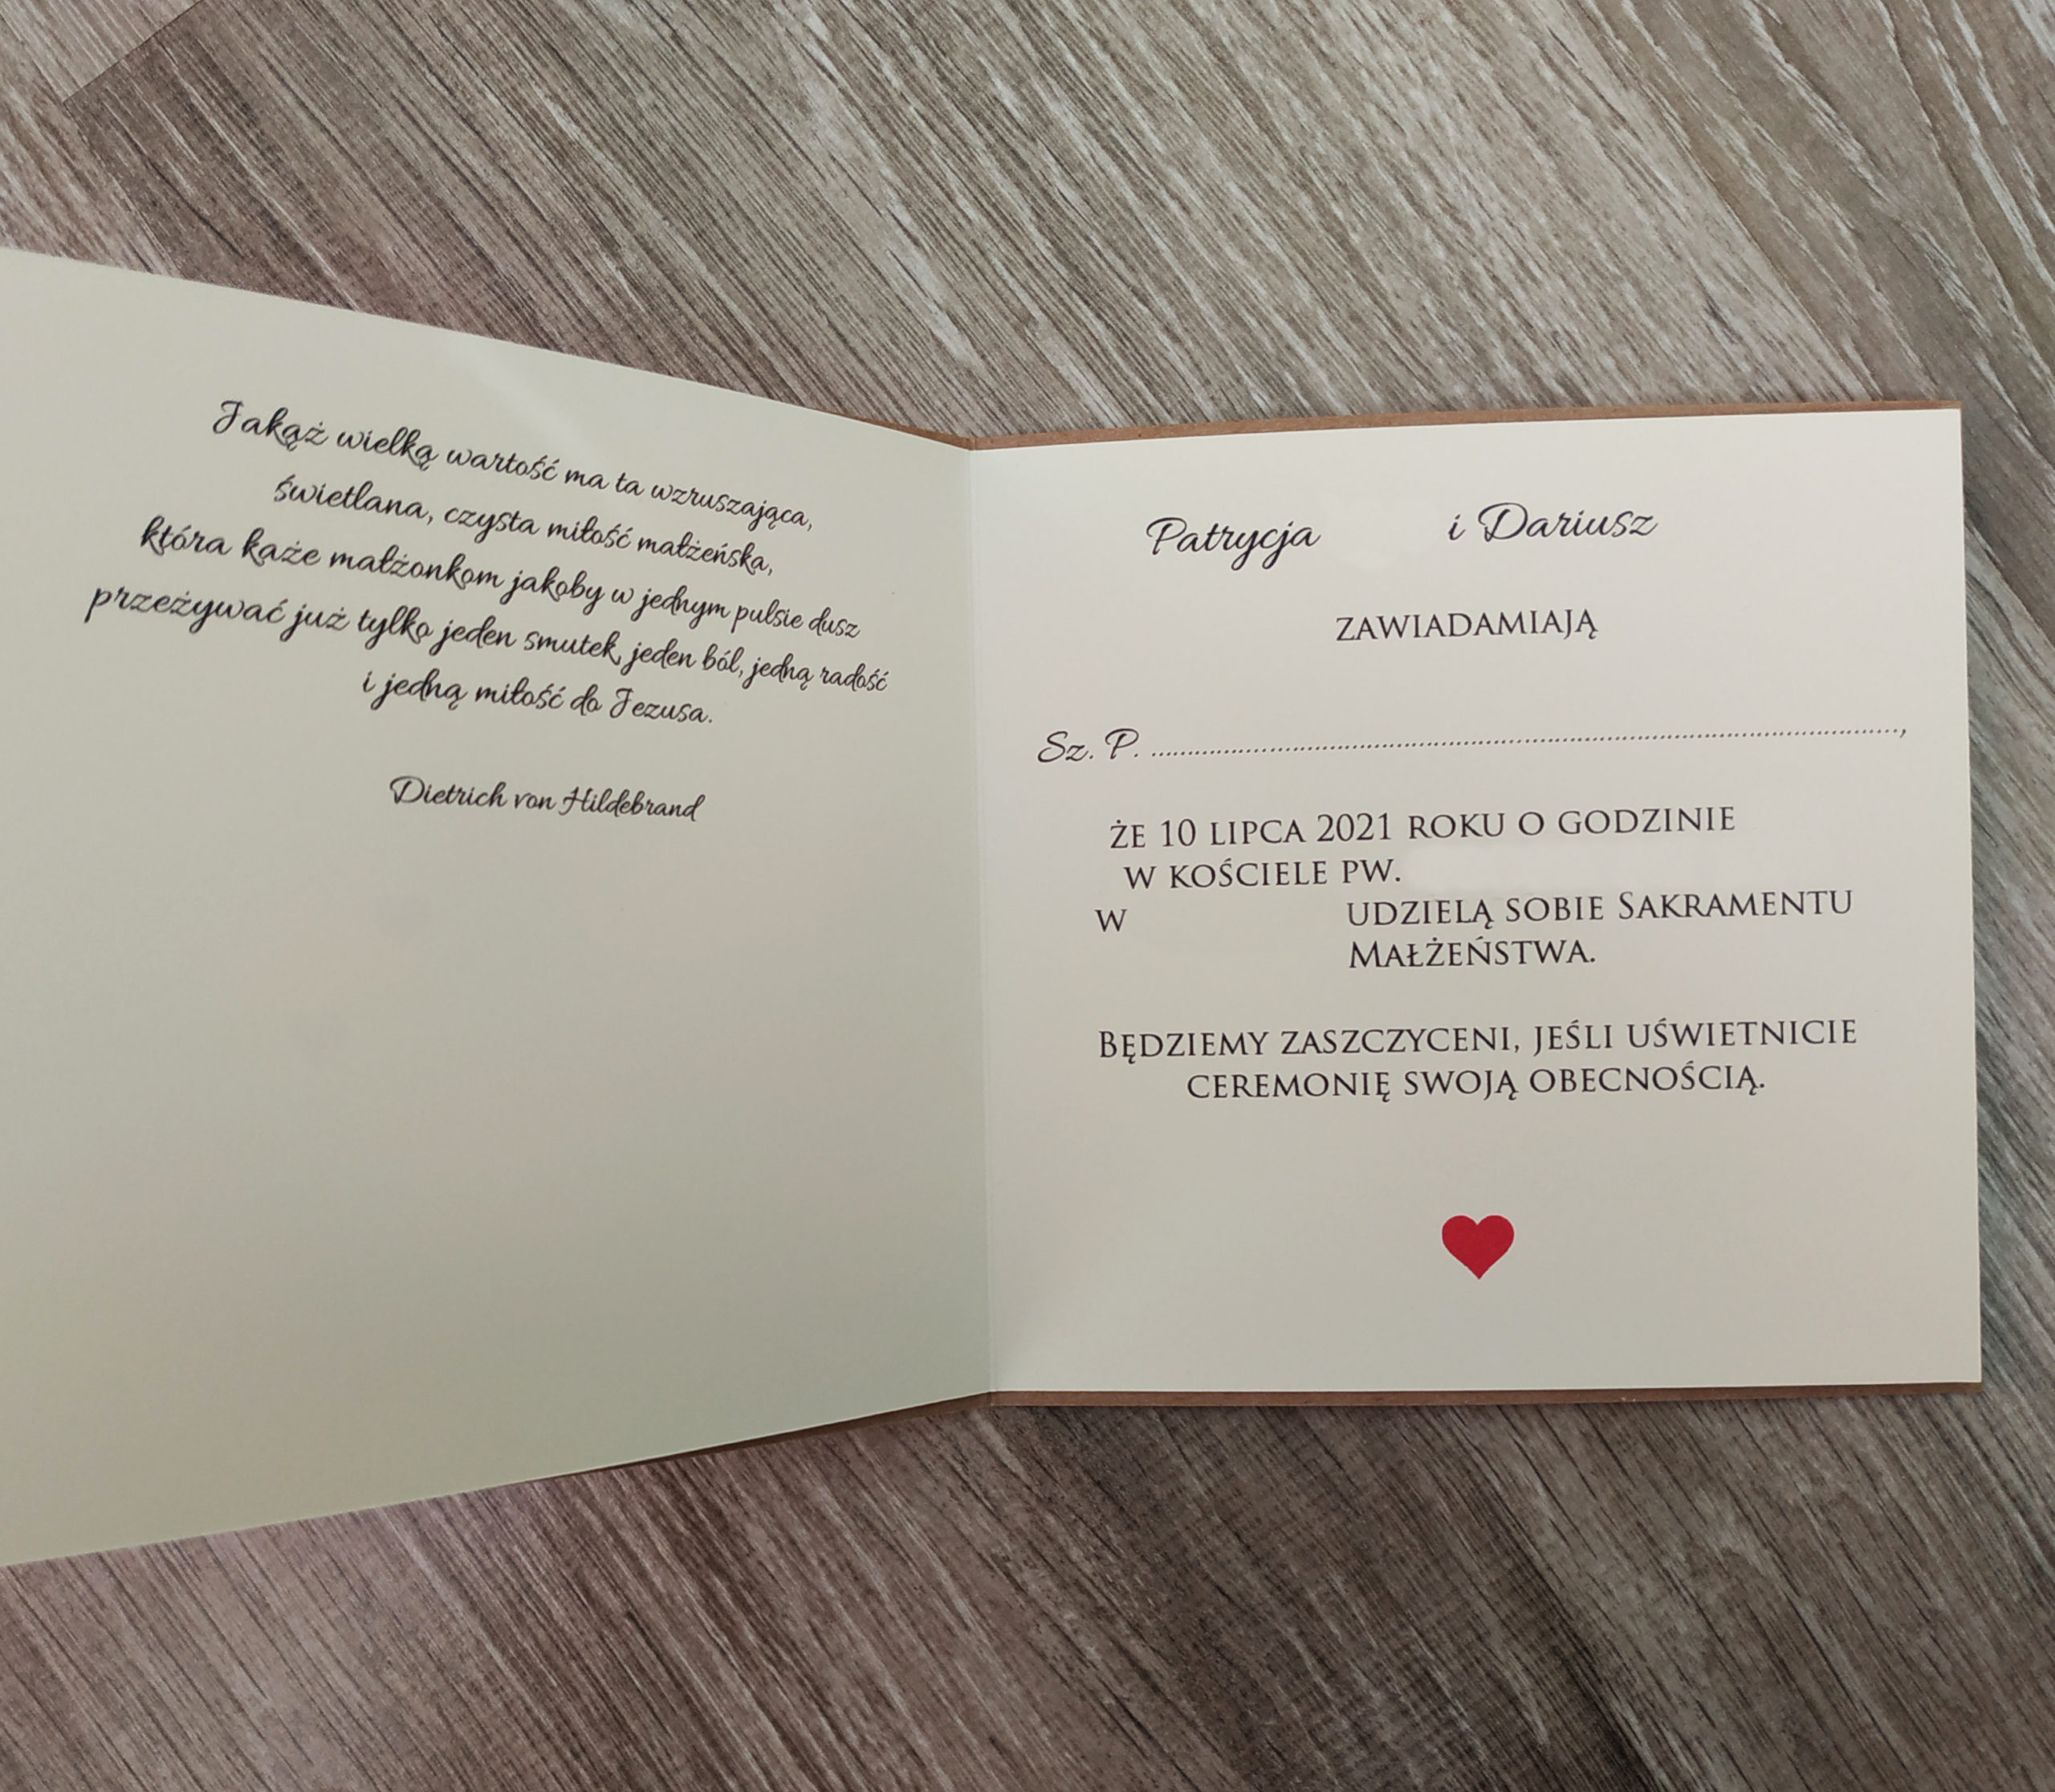 Jakąż wielką wartość ma ta wzruszająca,
świetlana, czysta miłość małżeńska,
która każe małżonkom jakoby w jednym pulsie dusz
przeżywać już tylko jeden smutek, jeden ból, jedną radość
i jedną miłość do Jezusa.
Dietrich von Hildebrand
Patrycja i Dariusz
ZAWIADAMIAJĄ
Sz. P. ........................................................................................................,
ŻE 10 LIPCA 2021 ROKU O GODZINIE
W KOŚCIELE PW.
W UDZIELĄ SOBIE SAKRAMENTU
MAŁŻEŃSTWA.
BĘDZIEMY ZASZCZYCENI, JEŚLI UŚWIETNICIE
CEREMONIĘ SWOJĄ OBECNOŚCIĄ.